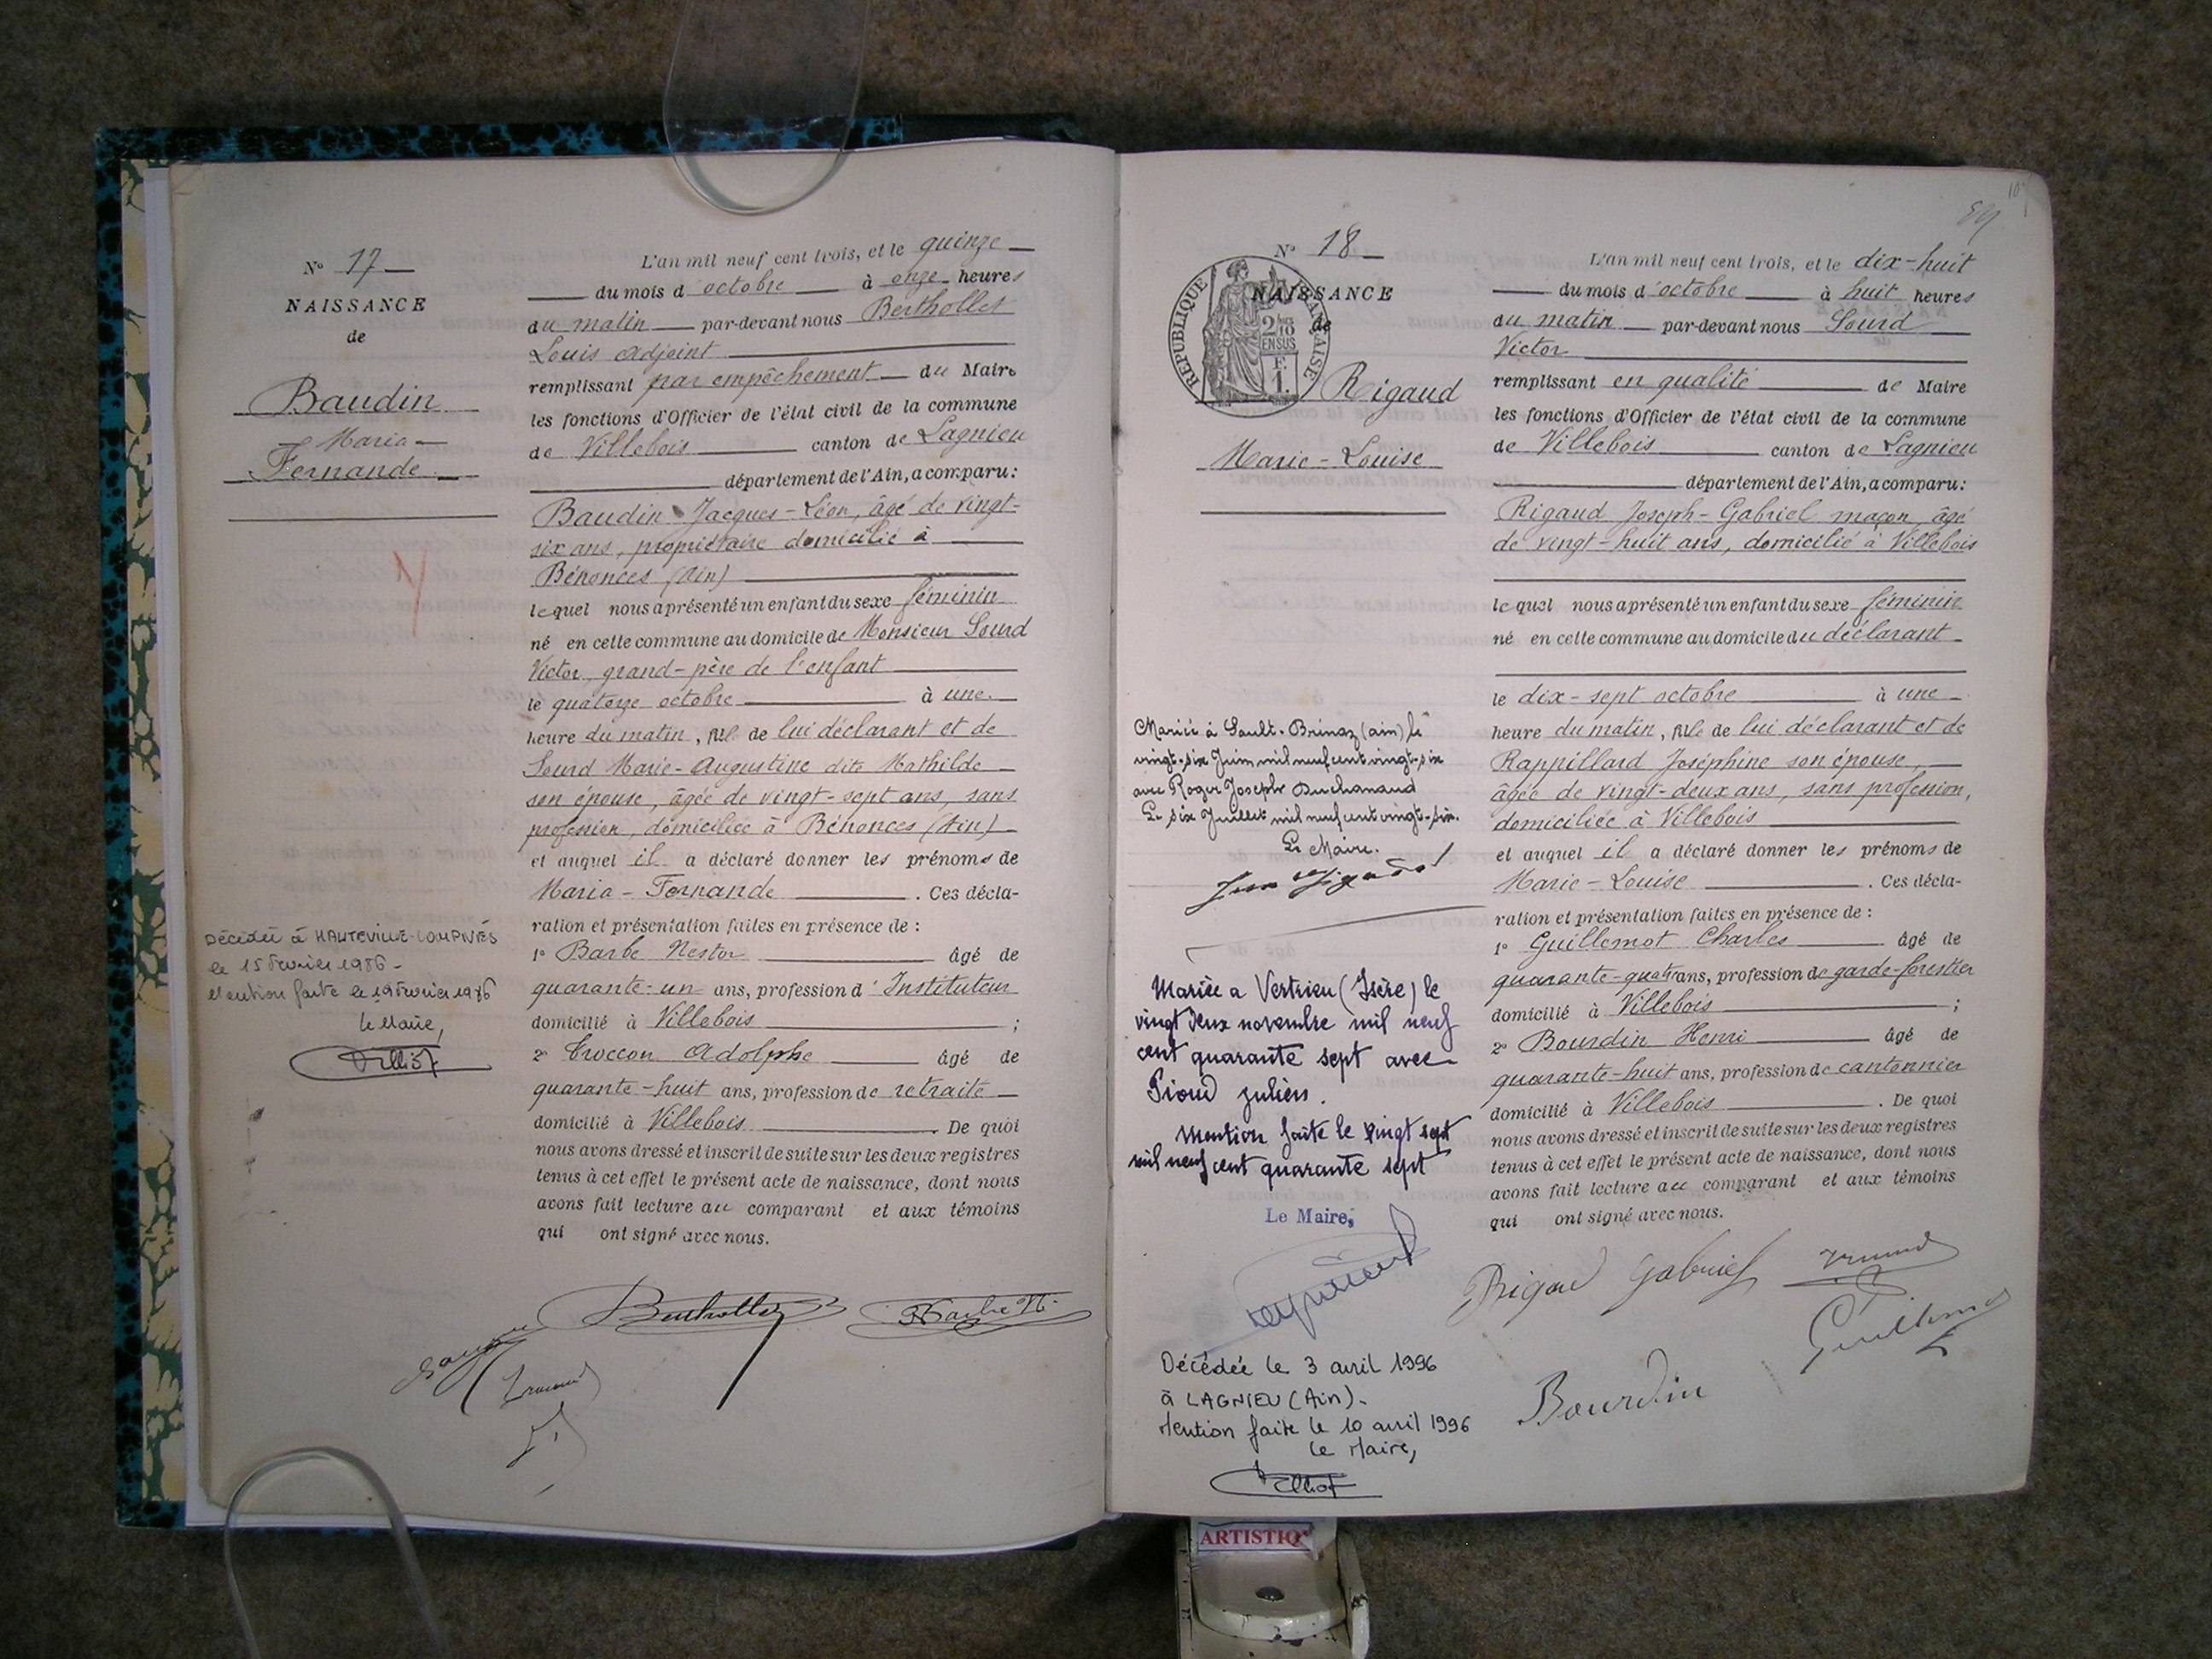 N° 17
NAISSANCE
de
Baudin
Maria
Fernande
Décédée à HAUTEVILLE-LOMPNES
le 15 Février 1986.
Mention faite le 19 Février 1986
le Maire,
L'an mil neuf cent trois, et le quinze
du mois d'octobre à onze heures
du matin par-devant nous Berthollet
Louis adjoint
remplissant par empêchement du Maire
les fonctions d'Officier de l'état civil de la commune
de Villebois canton de Lagnieu
département de l'Ain, a comparu:
Baudin Jacques-Léon, âgé de vingt-
six ans, propriétaire domicilié à
Bénonces (Ain)
lequel nous a présenté un enfant du sexe féminin
né en cette commune au domicile de Monsieur Sourd
Victor, grand-père de l'enfant
le quatorze octobre à une
heure du matin, fille de lui déclarant et de
Sourd Marie-Augustine dite Mathilde
son épouse, âgée de vingt-sept ans, sans
profession, domiciliée à Bénonces (Ain)
et auquel il a déclaré donner les prénoms de
Maria-Fernande. Ces décla-
ration et présentation faites en présence de :
1° Barbe Nestor âgé de
quarante-un ans, profession d'Instituteur
domicilié à Villebois ;
2° Troccon Adolphe âgé de
quarante-huit ans, profession de retraité
domicilié à Villebois. De quoi
nous avons dressé et inscrit de suite sur les deux registres
tenus à cet effet le présent acte de naissance, dont nous
avons fait lecture au comparant et aux témoins
qui ont signé avec nous.
Berthollet
Barbe N.
N° 18
NAISSANCE
de
RÉPUBLIQUE FRANÇAISE
2/10 EN SUS
F. 1.
Rigaud
Marie-Louise
Mariée à Sault-Brénaz (ain) le
vingt-six Juin mil neuf cent vingt-six
avec Roger Joseph Duchanaud
Le six Juillet mil neuf cent vingt-six.
Le Maire.
Mariée a Vertrieu (Isère) le
vingt deux novembre mil neuf
cent quarante sept avec
Pioud Julien.
Mention faite le vingt sept
mil neuf cent quarante sept
Le Maire,
Décédée le 3 avril 1996
à LAGNIEU (Ain).
Mention faite le 10 avril 1996
le Maire,
L'an mil neuf cent trois, et le dix-huit
du mois d'octobre à huit heures
du matin par-devant nous Sourd
Victor
remplissant en qualité de Maire
les fonctions d'Officier de l'état civil de la commune
de Villebois canton de Lagnieu
département de l'Ain, a comparu:
Rigaud Joseph-Gabriel maçon, âgé
de vingt-huit ans, domicilié à Villebois
lequel nous a présenté un enfant du sexe féminin
né en cette commune au domicile du déclarant
le dix-sept octobre à une
heure du matin, fille de lui déclarant et de
Rappillard Joséphine son épouse,
âgée de vingt-deux ans, sans profession,
domiciliée à Villebois
et auquel il a déclaré donner les prénoms de
Marie-Louise. Ces décla-
ration et présentation faites en présence de :
1° Guillemot Charles âgé de
quarante-quatre ans, profession de garde-forestier
domicilié à Villebois ;
2° Bourdin Henri âgé de
quarante-huit ans, profession de cantonnier
domicilié à Villebois. De quoi
nous avons dressé et inscrit de suite sur les deux registres
tenus à cet effet le présent acte de naissance, dont nous
avons fait lecture au comparant et aux témoins
qui ont signé avec nous.
Rigaud Gabriel
Guillemot
Bourdin
ARTISTIQ